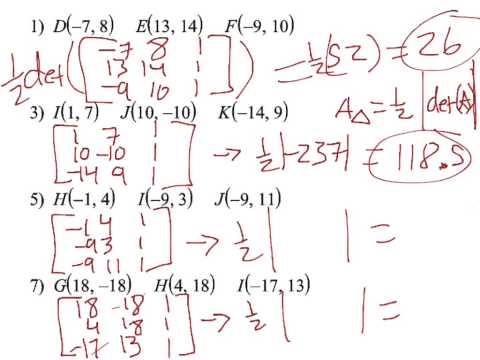 1) D(−7, 8) E(13, 14) F(−9, 10)
1/2 det([−7 8 1
13 14 1
−9 10 1]) = 1/2(52) = 26
A△ = 1/2 |det(A)|
3) I(1, 7) J(10, −10) K(−14, 9)
[1 7 1
10 −10 1
−14 9 1] → 1/2|−237| = 118.5
5) H(−1, 4) I(−9, 3) J(−9, 11)
[−1 4 1
−9 3 1
−9 11 1] → 1/2 | | =
7) G(18, −18) H(4, 18) I(−17, 13)
[18 −18 1
4 18 1
−17 13 1] → 1/2 | | =